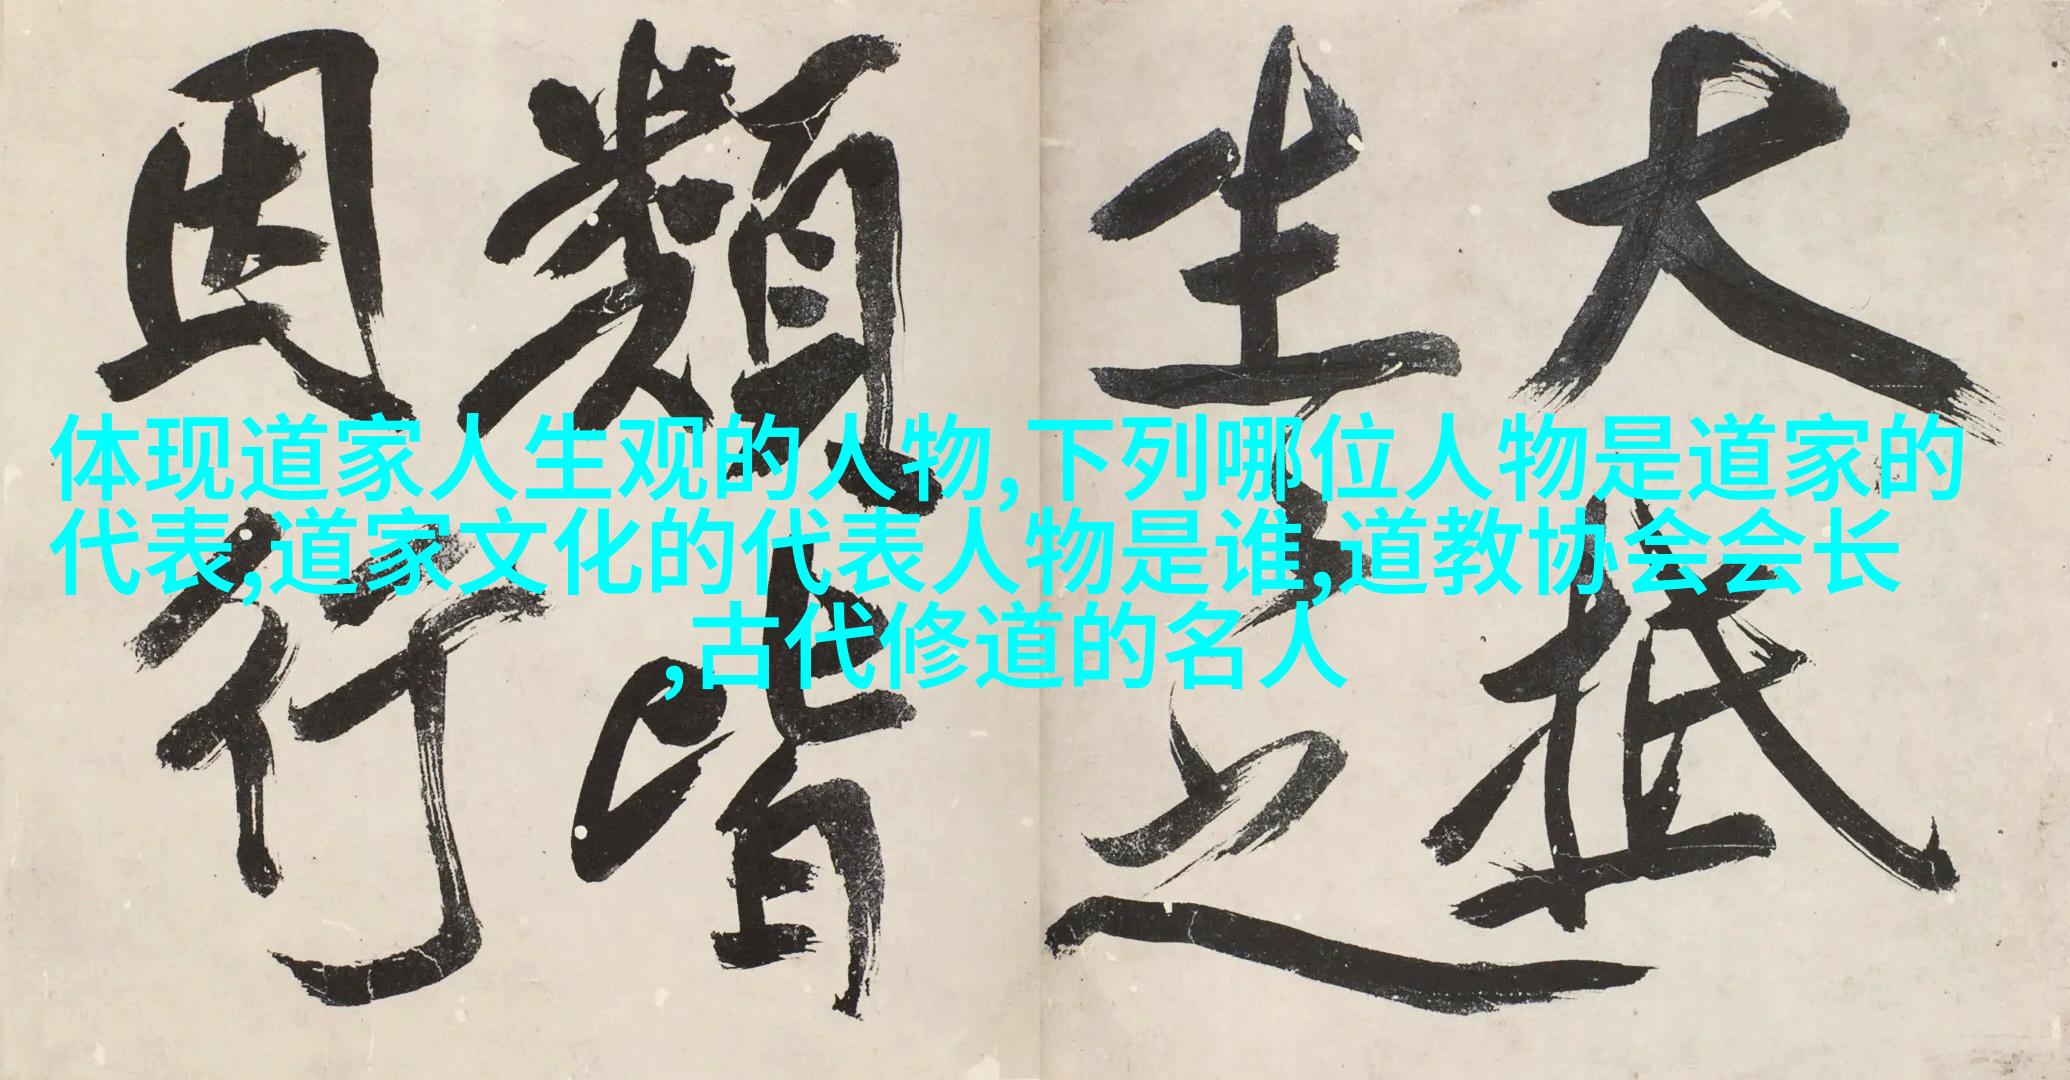 大抵
生之
類皆
因行
体现道家人生观的人物,下列哪位人物是道家的
代表,道家文化的代表人物是谁,道教协会会长
,古代修道的名人